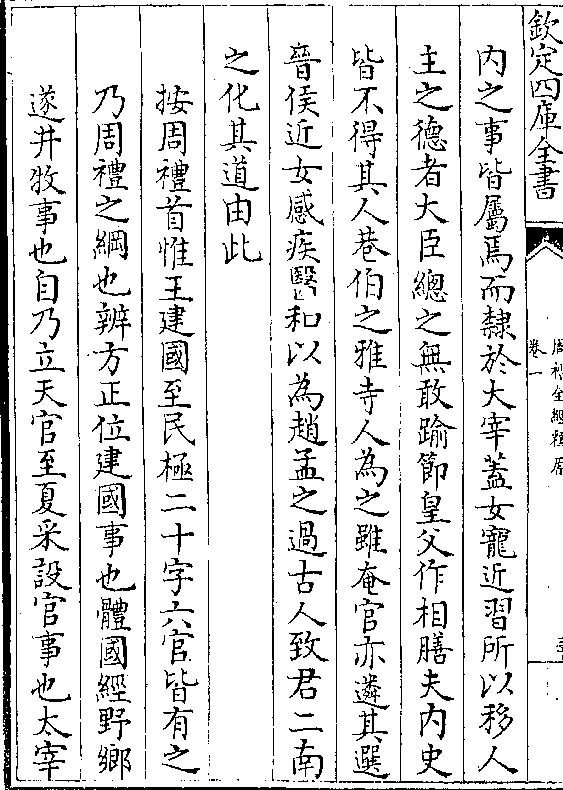 欽定四庫全書
卷一
內之事皆屬焉而隸於大宰蓋女寵近習所以移人
主之德者大臣總之無敢踰節皇父作相膳夫內史
皆不得其人巷伯之雅寺人為之雖奄官亦遴其選
晉侯近女感疾醫和以為趙孟之過古人致君二南
之化其道由此
按周禮首惟王建國至民極二十字六官皆有之
乃周禮之綱也辨方正位建國事也體國經野鄉
遂井牧事也自乃立天官至夏采設官事也太宰